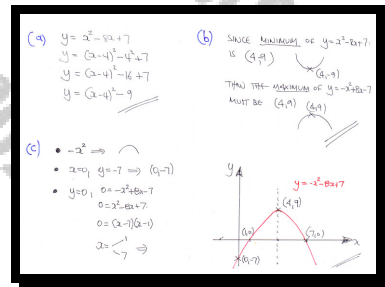 (a) y = x² - 8x + 7
y = (x-4)² - 4² + 7
y = (x-4)² - 16 + 7
y = (x-4)² - 9
(b) SINCE MINIMUM OF y = x² - 8x + 7
IS (4,-9)
(4,-9)
THEN THE MAXIMUM OF y = -x² + 8x - 7
MUST BE (4,9) (4,9)
(c) • -x² ⇒
• x=0, y=-7 ⇒ (0,-7)
• y=0, 0 = -x² + 8x - 7
0 = x² - 8x + 7
0 = (x-7)(x-1)
x = 1
7 ⇒
y
y = -x² - 8x + 7
(4,9)
(1,0)
(7,0)
x
(0,-7)